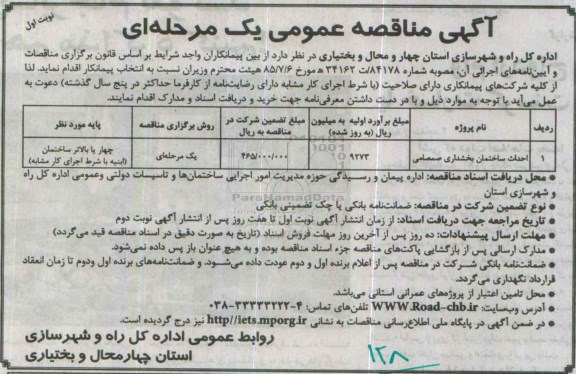 نوبت اول
آگهی مناقصه عمومی یک مرحله‌ای
اداره کل راه و شهرسازی استان چهار و محال و بختیاری در نظر دارد از بین پیمانکاران واجد شرایط بر اساس قانون برگزاری مناقصات
و آیین‌نامه‌های اجرائی آن، مصوبه شماره ۸۴۱۷۸/ت ۳۴۱۶۲ ه مورخ ۸۵/۷/۶ هیئت محترم وزیران نسبت به انتخاب پیمانکار اقدام نماید. لذا
از کلیه شرکت‌های پیمانکاری دارای صلاحیت (با شرط اجرای کار مشابه دارای رضایت‌نامه از کارفرما حداکثر در پنج سال گذشته) دعوت به
عمل می‌آید با توجه به موارد ذیل و با در دست داشتن معرفی‌نامه جهت خرید و دریافت اسناد و مدارک اقدام نمایند.
ردیف نام پروژه مبلغ برآورد اولیه به میلیون ریال (به روز شده) مبلغ تضمین شرکت در مناقصه به ریال روش برگزاری مناقصه پایه مورد نظر
۱ احداث ساختمان بخشداری صمصامی ۹۲۷۳ ۴۶۵/۰۰۰/۰۰۰ یک مرحله‌ای چهار یا بالاتر ساختمان (ابنیه با شرط اجرای کار مشابه)
محل دریافت اسناد مناقصه: اداره پیمان و رسیدگی حوزه مدیریت امور اجرایی ساختمان‌ها و تاسیسات دولتی وعمومی اداره کل راه
و شهرسازی استان
نوع تضمین شرکت در مناقصه: ضمانت‌نامه بانکی یا چک تضمینی بانکی
تاریخ مراجعه جهت دریافت اسناد: از زمان انتشار آگهی نوبت اول تا هفت روز پس از انتشار آگهی نوبت دوم
مهلت ارسال پیشنهادات: ده روز پس از آخرین روز مهلت فروش اسناد (تاریخ به صورت دقیق در اسناد مناقصه قید می‌گردد)
مدارک ارسالی پس از بازگشایی پاکت‌های مناقصه جزء اسناد مناقصه بوده و به هیچ عنوان باز پس داده نمی‌شود.
ضمانت‌نامه بانکی شرکت در مناقصه پس از اعلام برنده اول و دوم عودت داده می‌شود. و ضمانت‌نامه‌های برنده اول ودوم تا زمان انعقاد
قرارداد نگهداری می‌گردد.
محل تامین اعتبار از پروژه‌های عمرانی استانی می‌باشد.
آدرس وبسایت: WWW.Road-chb.ir تلفن‌های تماس: ۴-۳۳۳۳۳۲۲۲-۰۳۸
در ضمن آگهی در پایگاه ملی اطلاع‌رسانی مناقصات به نشانی http//iets.mporg.ir نیز درج گردیده است.
روابط عمومی اداره کل راه و شهرسازی
استان چهارمحال و بختیاری
۱۲۸
ParsNamadData